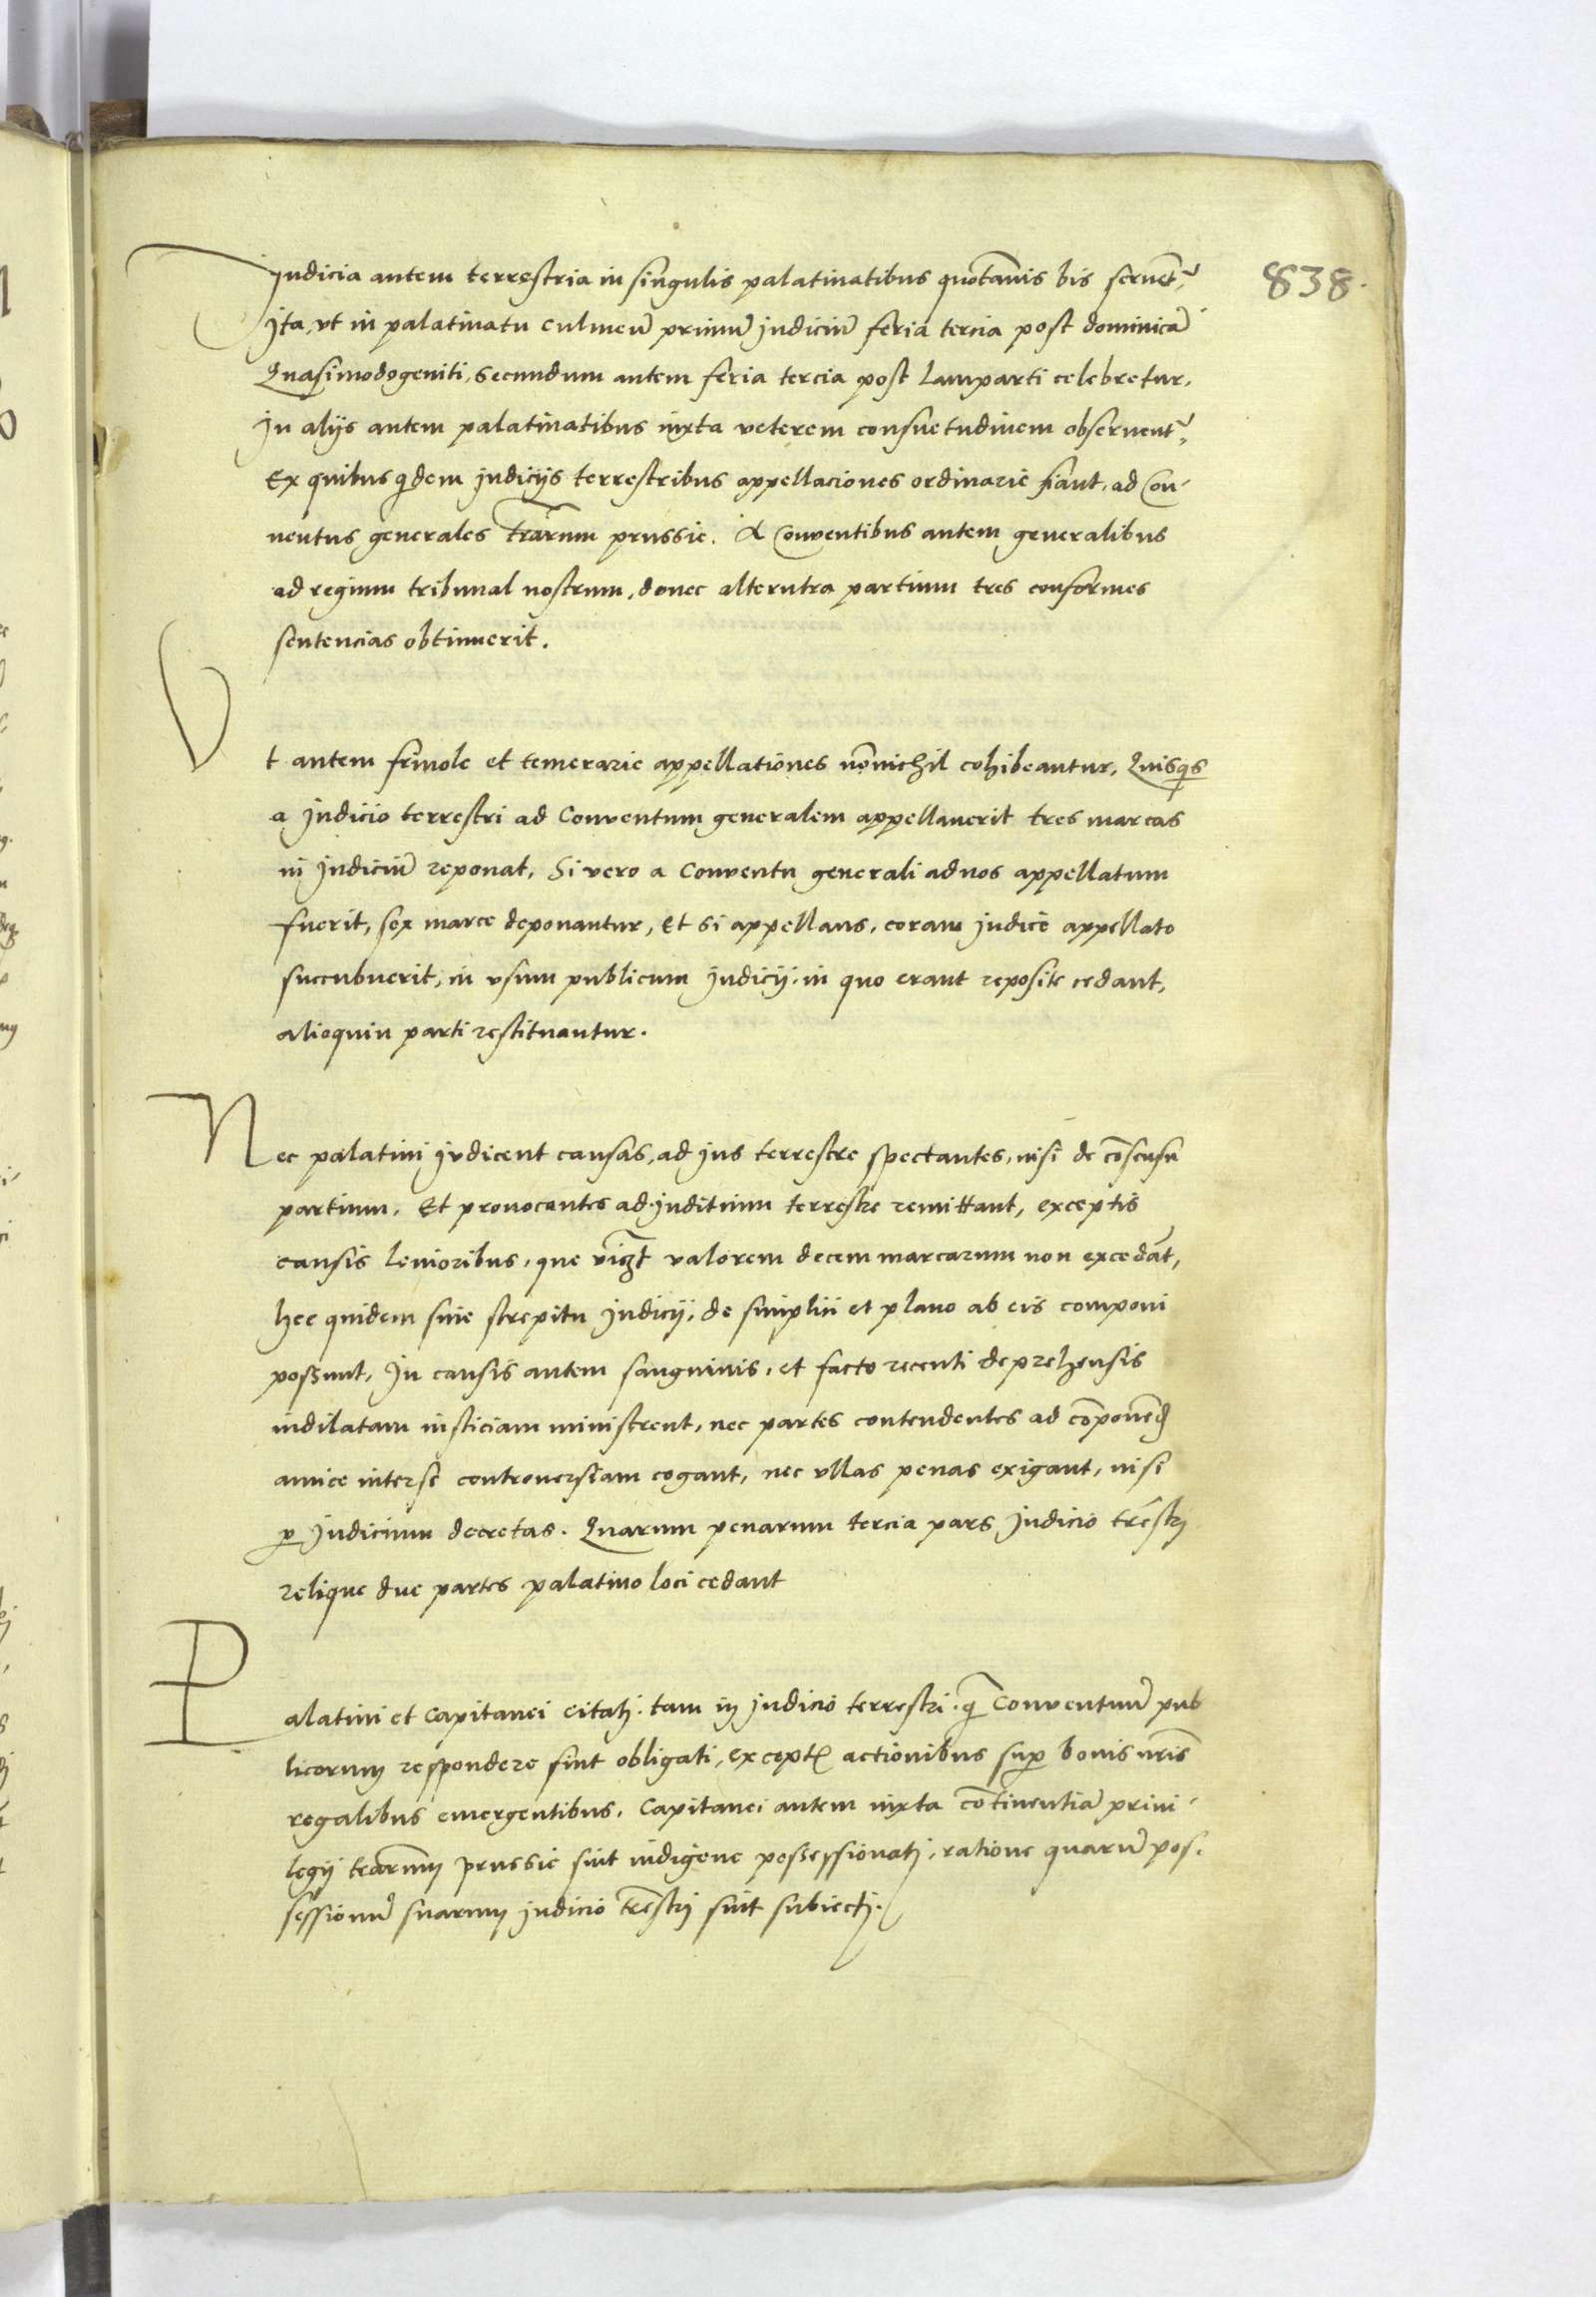 838.
Judicia autem terrestria in singulis palatinatibus quotānis bis seruēt~
Jta, vt in palatinatu culmeñ primū judiciū feria tercia post dominicā
Quasimodogeniti, Secundum autem feria tercia post Lamparti celebretur,
Jn alijs autem palatinatibus iuxta veterem consuetudinem obseruent~
Ex quibus qidem judicijs terrestribus appellaciones ordinarie fiant, ad Con-
uentus generales tr̄arum prussie. A Conventibus autem generalibus
ad regium tribunal nostrum, donec alterutra partium tres conformes
sentencias obtinuerit.
Vt autem friuole et temerarie appellationes nōnichil cohibeantur, Quisqis
a judicio terrestri ad Conventum generalem appellauerit tres marcas
in judiciū reponat, Si vero a Conventu generali ad nos appellatum
fuerit, sex marce deponantur, Et si appellans, coram judice appellato
succubuerit, in vsum publicum judicij. in quo erant reposite cedant,
alioquin parti restituantur.
Nec palatini judicent causas, ad jus terrestre spectantes, nisi de cōsensu
partium. Et prouocantes ad juditium terrestre remittant, exceptis
causis leuioribus, que vigꝫt valorem decem marcarum non excedāt,
hec quidem sine strepitu judicij, de simplici et plano ab eis componi
possunt, Jn causis autem sanguinis, et facto recenti deprehensis
indilatam iusticiam ministrent, nec partes contendentes ad cōponēd
amice inter se controuersiam cogant, nec vllas penas exigant, nisi
ꝑ judicium decretas. Quarum penarum tercia pars judicio tr̄estri
relique due partes palatino loci cedant
Palatini et Capitanei citati. tam in judicio terrestri. q̄ Conventuū pub
licorum respondere sint obligati, exceptꝭ actionibus suꝑ bonis nr̄is
regalibus emergentibus. Capitanei autem iuxta cōtinentiā priui-
legij terarum prussie sint indigene possessionati, ratione quarū pos-
sessionū suarum judicio tr̄estri sint subiecti.